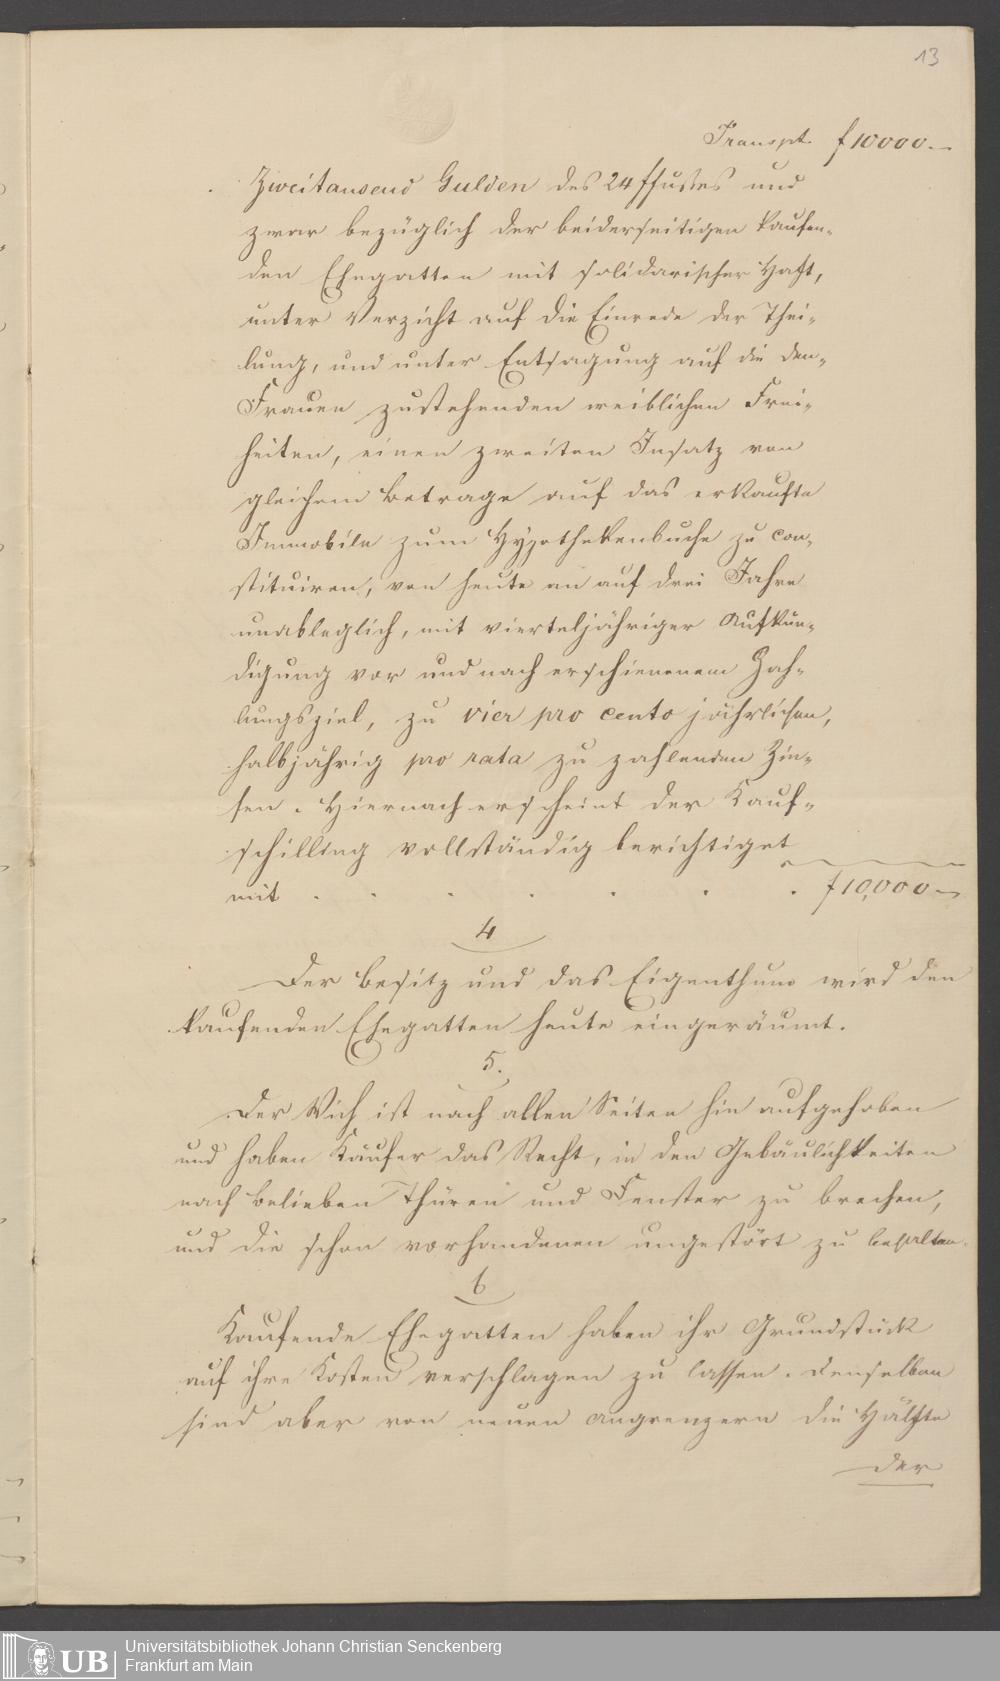 13
Transpt. f 10000.—
Zweitausend Gulden des 24 ffußes und
zwar bezüglich der beiderseitigen kaufen-
den Ehegatten mit solidarischer Haft,
unter Verzicht auf die Einrede der Thei-
lung, und unter Entsagung auf die den
Frauen zustehenden weiblichen Frei-
heiten, einen zweiten Insatz von
gleichem Betrage auf das erkaufte
Immobile zum Hypothekenbuche zu con-
stituiren, von heute an auf drei Jahre
unableglich, mit vierteljähriger Aufkün-
digung vor und nach erschienenem Zah-
lungsziel, zu vier pro cento jährlichen,
halbjährig pro rata zu zahlenden Zin-
sen. Hiernach erscheint der Kauf-
schilling vollständig berichtiget
mit . . . . . . . f 10,000—
4
Der Besitz und das Eigenthum wird den
kaufenden Ehegatten heute eingeräumt.
5.
Der Wich ist nach allen Seiten hin aufgehoben
und haben Käufer das Recht, in den Gebäulichkeiten
nach Belieben Thüren und Fenster zu brechen,
und die schon vorhandenen ungestört zu behalten.
6
Kaufende Ehegatten haben ihr Grundstück
auf ihre Kosten verschlagen zu lassen. Denselben
sind aber von neuen Angrenzern die Hälfte
der
UB
Universitätsbibliothek Johann Christian Senckenberg
Frankfurt am Main